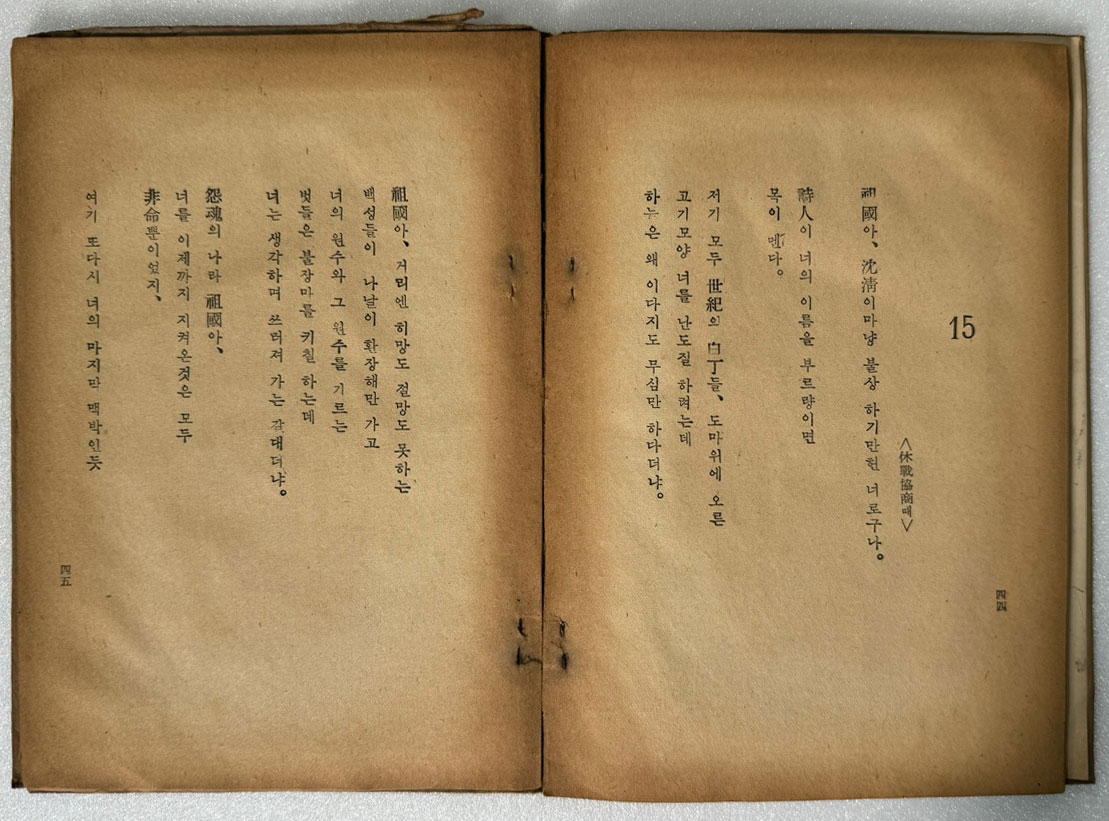 15
<休戰協商때>
祖國아、沈淸이마냥 불상 하기만헌 너로구나。
詩人이 너의 이름을 부르량이면
목이 멘다。
저기 모두 世紀의 白丁들、도마위에 오른
고기모양 너를 난도질 하려는데
하늘은 왜 이다지도 무심만 하다더냐。
四四
祖國아、거리엔 히망도 절망도 못하는
백성들이 나날이 환장해만 가고
너의 원수와 그 원수를 기르는
벗들은 불장마를 키질 하는데
너는 생각하며 쓰러져 가는 갈대더냐。
怨魂의 나라 祖國아、
너를 이제까지 지켜온것은 모두
非命뿐이었지、
여기 또다시 너의 마지막 맥박인듯
四五